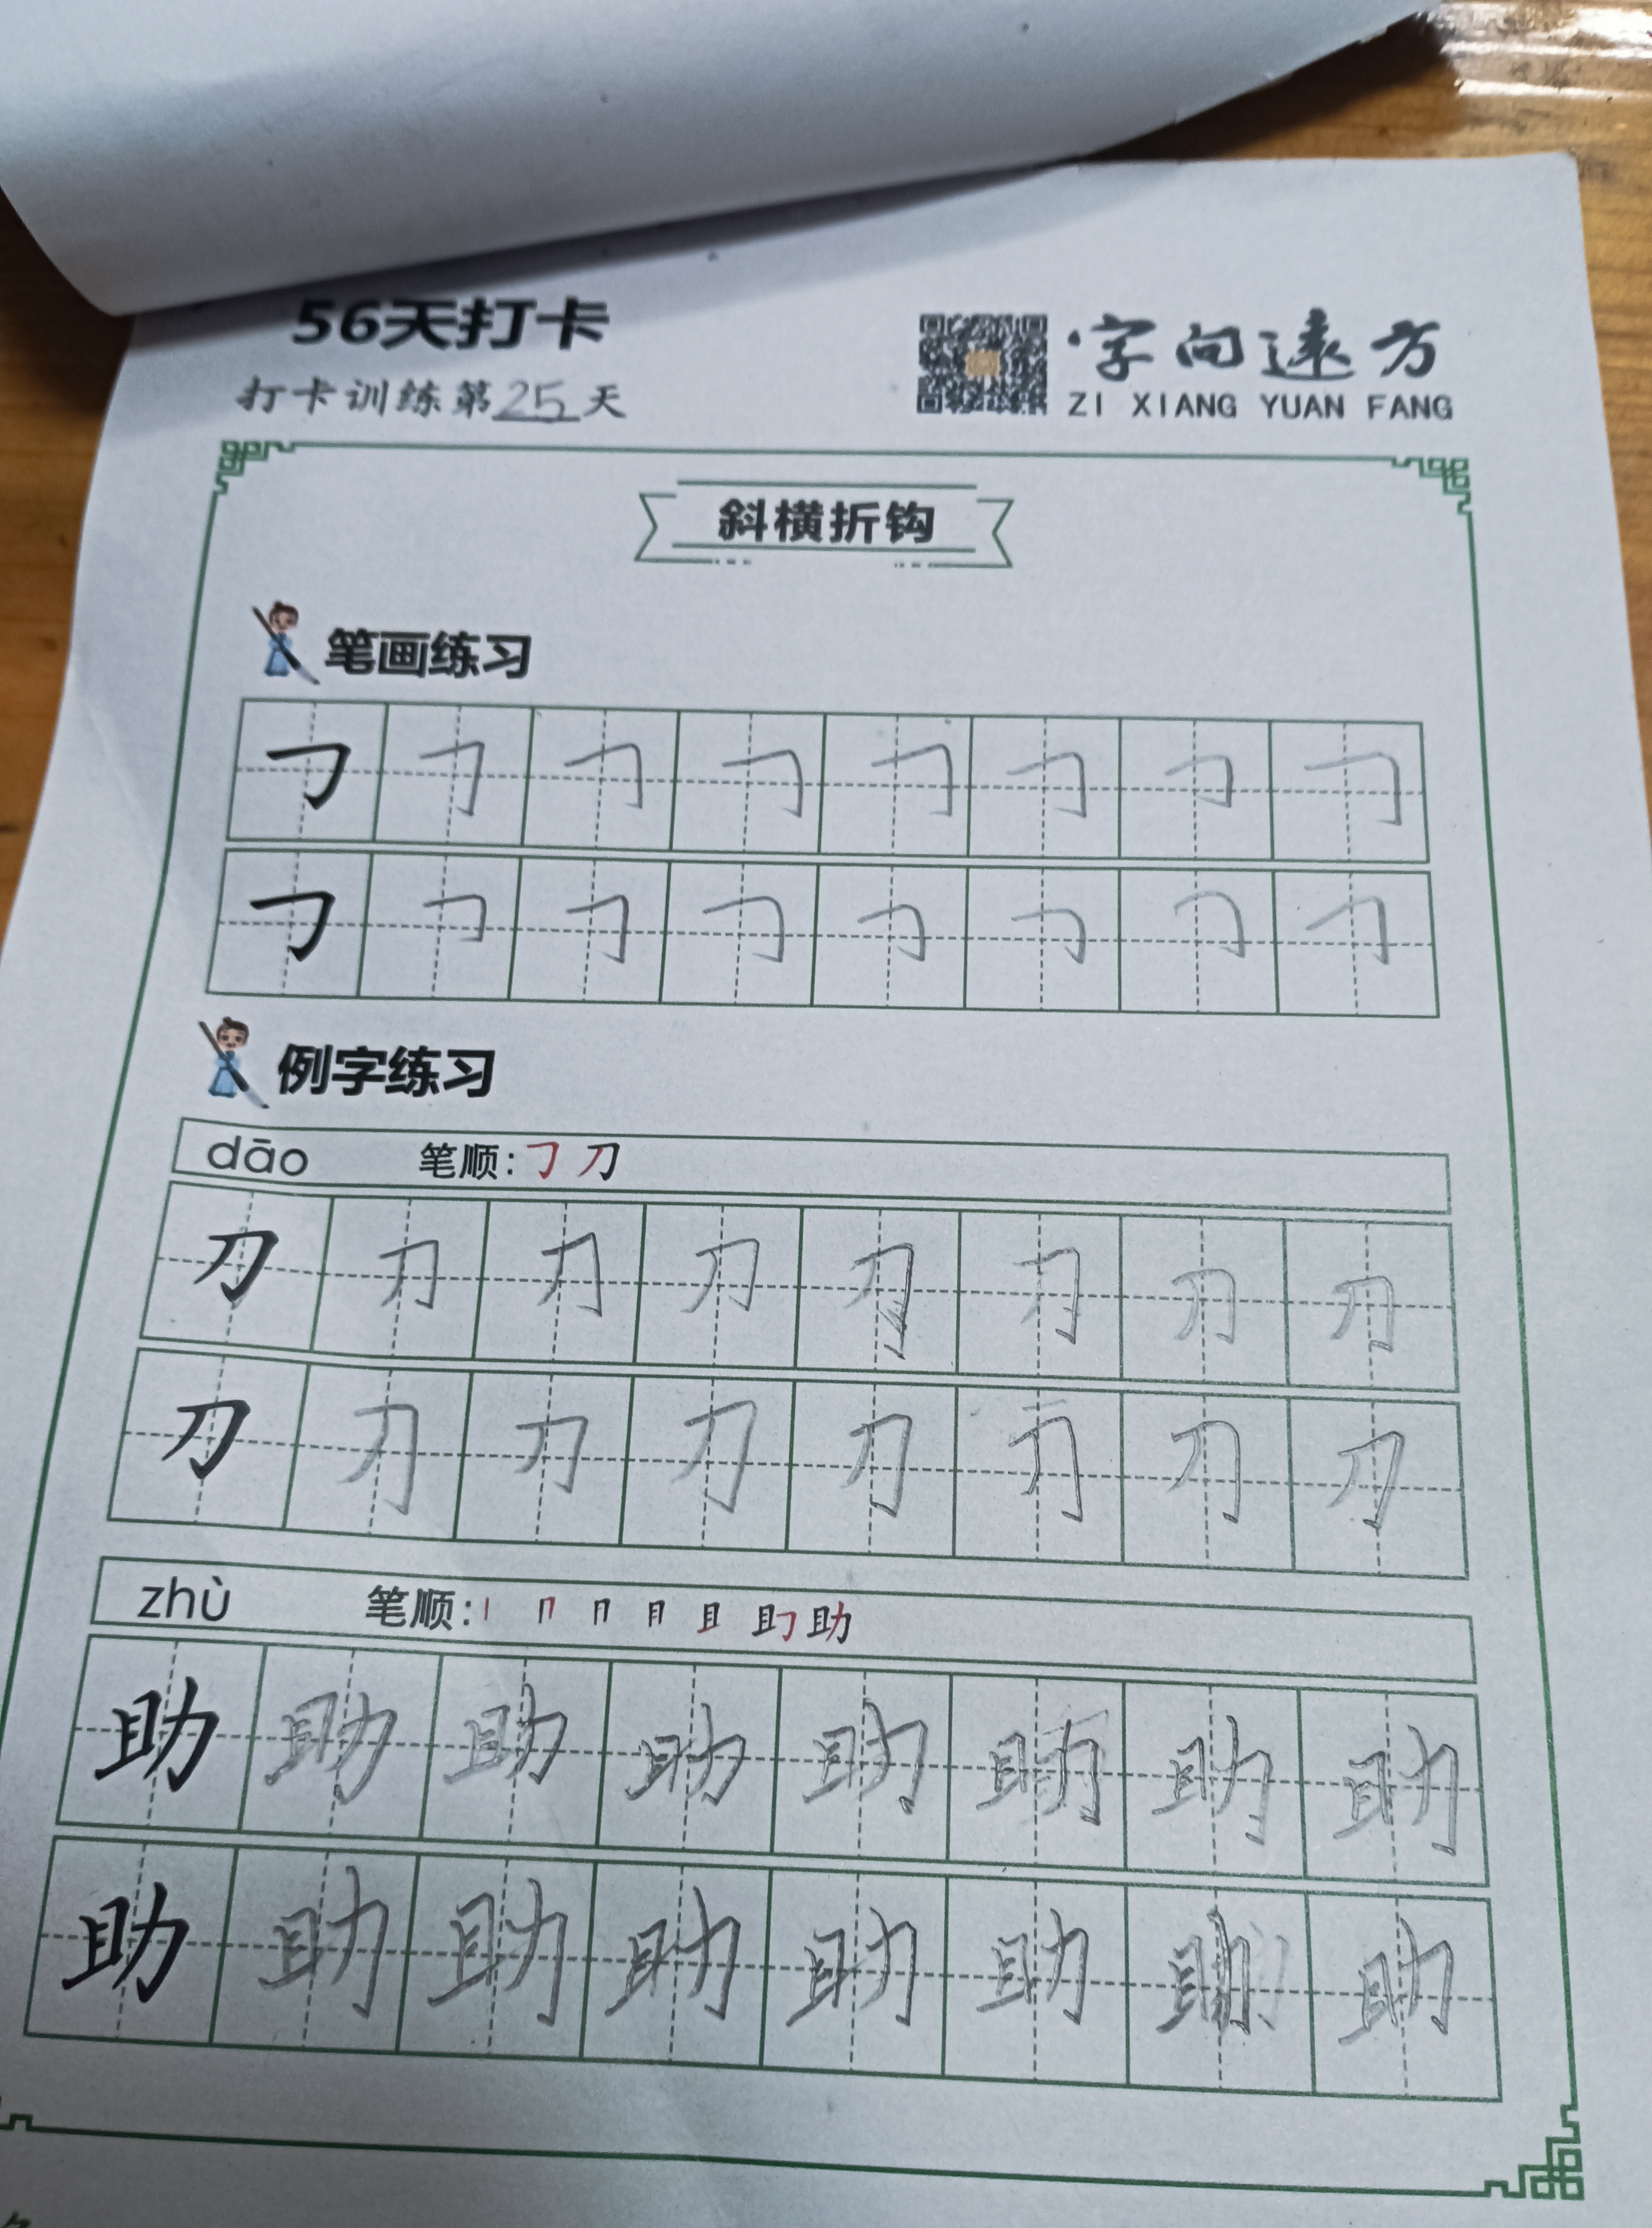 56天打卡
打卡训练第25天
字向远方
ZI XIANG YUAN FANG
斜横折钩
笔画练习
㇆ ㇆ ㇆ ㇆ ㇆ ㇆ ㇆ ㇆
㇆ ㇆ ㇆ ㇆ ㇆ ㇆ ㇆ ㇆
例字练习
dāo 笔顺: ㇆ 刀
刀 刀 刀 刀 刀 刀 刀 刀
刀 刀 刀 刀 刀 刀 刀 刀
zhù 笔顺: 丨 冂 助
助 助 助 助 助 助 助 助
助 助 助 助 助 助 助 助